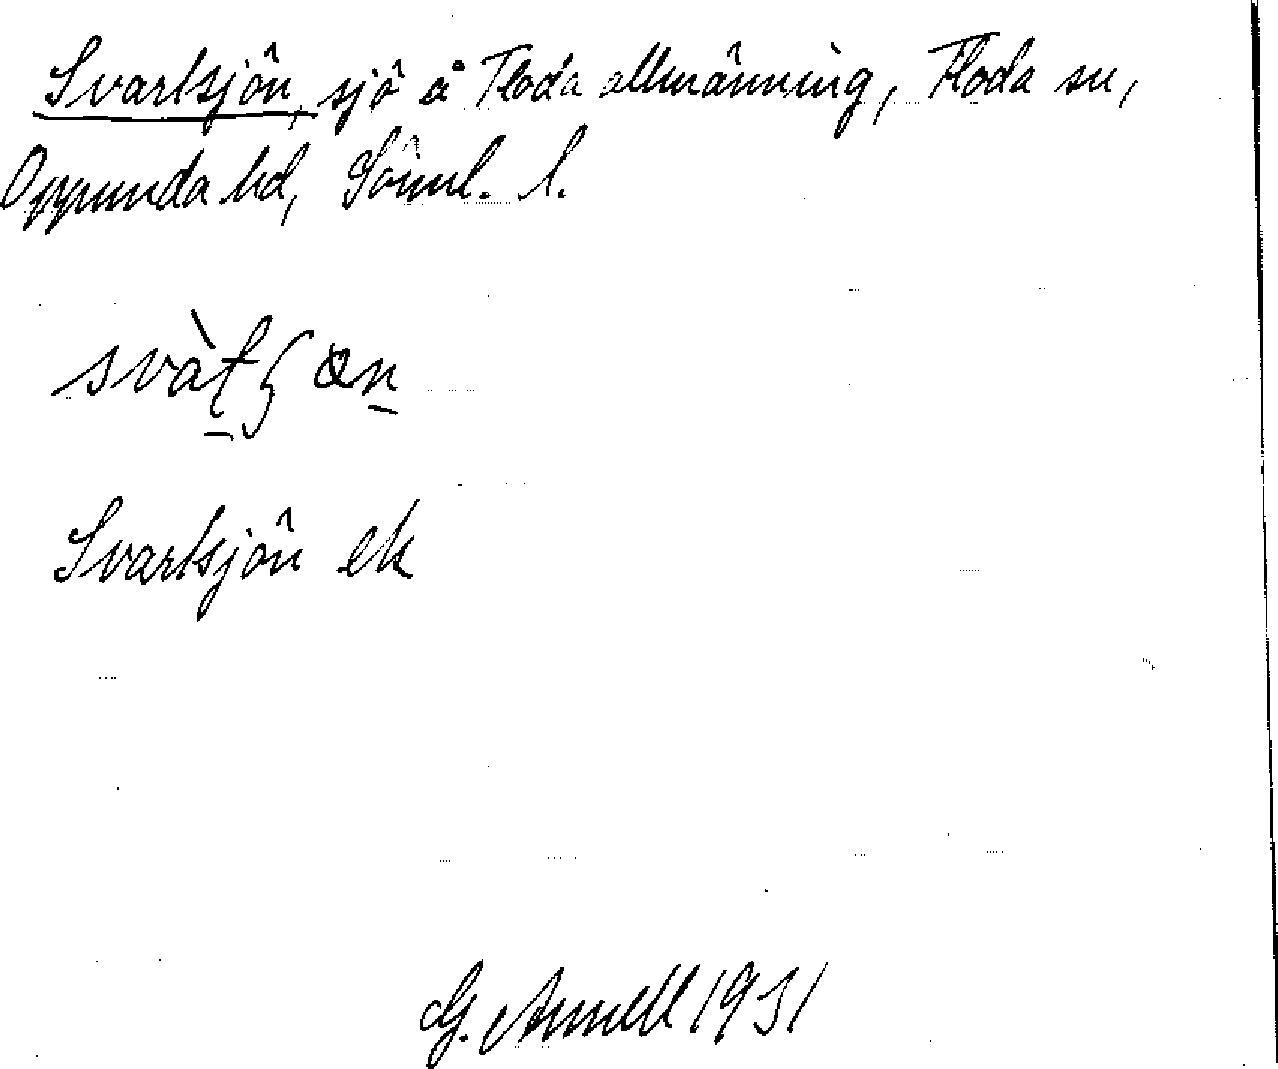 Svartsjön, sjö å Floda allmänning, Floda sn,
Oppunda hd, Söml. l.
Svartsjön ek
G. Annell 1931